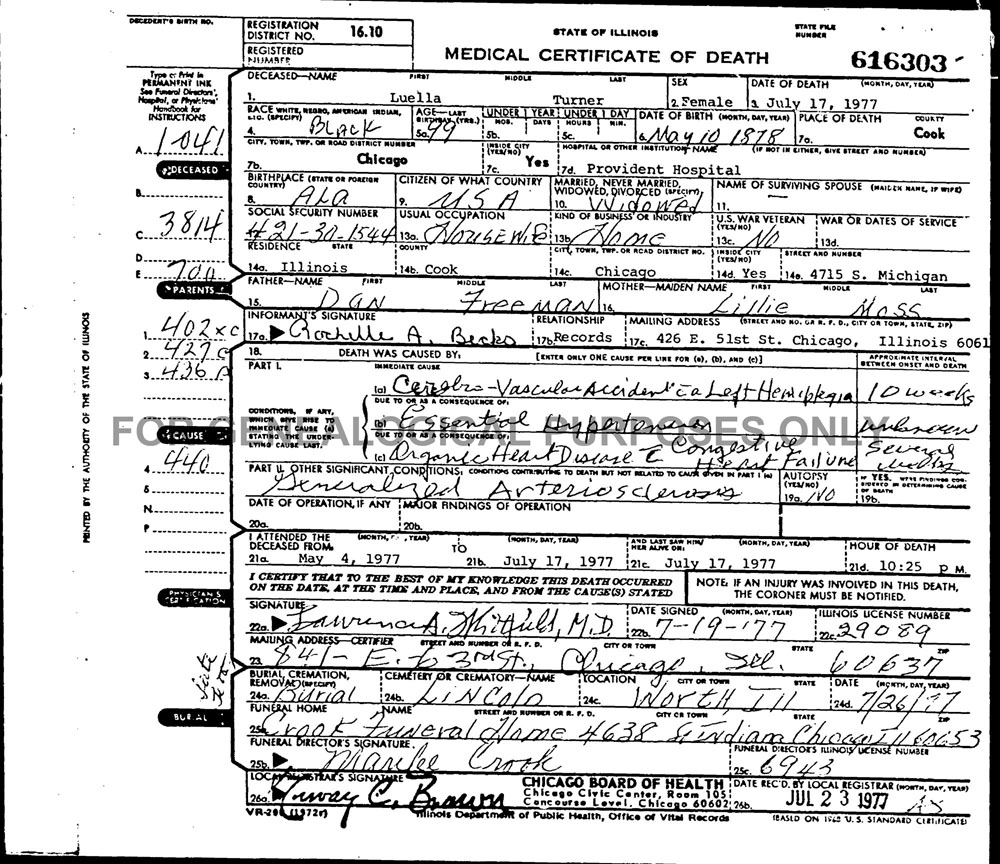 DECEDENT'S BIRTH NO.
REGISTRATION DISTRICT NO. 16.10
REGISTERED NUMBER
STATE OF ILLINOIS
STATE FILE NUMBER
MEDICAL CERTIFICATE OF DEATH
616303
Type or Print in PERMANENT INK
See Funeral Directors', Hospital, or Physicians' Handbook for INSTRUCTIONS
DECEASED—NAME FIRST MIDDLE LAST
1. Luella Turner
SEX
2. Female
DATE OF DEATH (MONTH, DAY, YEAR)
3. July 17, 1977
RACE WHITE, NEGRO, AMERICAN INDIAN, ETC. (SPECIFY)
4. Black
AGE—LAST BIRTHDAY (YRS.)
5a. 99
UNDER 1 YEAR MOS. DAYS
5b.
UNDER 1 DAY HOURS MIN.
5c.
DATE OF BIRTH (MONTH, DAY, YEAR)
6. May 10 1878
PLACE OF DEATH COUNTY
7a. Cook
CITY, TOWN, TWP. OR ROAD DISTRICT NUMBER
7b. Chicago
INSIDE CITY (YES/NO)
7c. Yes
HOSPITAL OR OTHER INSTITUTION—NAME (IF NOT IN EITHER, GIVE STREET AND NUMBER)
7d. Provident Hospital
A 1041
DECEASED
BIRTHPLACE (STATE OR FOREIGN COUNTRY)
8. ALA
CITIZEN OF WHAT COUNTRY
9. USA
MARRIED, NEVER MARRIED, WIDOWED, DIVORCED (SPECIFY)
10. Widowed
NAME OF SURVIVING SPOUSE (MAIDEN NAME, IF WIFE)
11. —
B.
SOCIAL SECURITY NUMBER
421-30-1544
USUAL OCCUPATION
13a. Housewife
KIND OF BUSINESS OR INDUSTRY
13b. Home
U.S. WAR VETERAN (YES/NO)
13c. No
WAR OR DATES OF SERVICE
13d.
C 3814
RESIDENCE STATE
14a. Illinois
COUNTY
14b. Cook
CITY, TOWN, TWP. OR ROAD DISTRICT NO.
14c. Chicago
INSIDE CITY (YES/NO)
14d. Yes
STREET AND NUMBER
14e. 4715 S. Michigan
D
E 700
PARENTS
FATHER—NAME FIRST MIDDLE LAST
15. Dan Freeman
MOTHER—MAIDEN NAME FIRST MIDDLE LAST
16. Lillie Moss
INFORMANT'S SIGNATURE
17a. Rochelle A. Becks
RELATIONSHIP
17b. Records
MAILING ADDRESS (STREET AND NO. OR R. F. D., CITY OR TOWN, STATE, ZIP)
17c. 426 E. 51st St. Chicago, Illinois 6061
1. 402xc
2 427 c
3 436 A
18. DEATH WAS CAUSED BY: [ENTER ONLY ONE CAUSE PER LINE FOR (a), (b), AND (c)]
APPROXIMATE INTERVAL BETWEEN ONSET AND DEATH
PART I. IMMEDIATE CAUSE
(a) Cerebro-Vascular Accident c a Left Hemiplegia 10 weeks
DUE TO OR AS A CONSEQUENCE OF:
CONDITIONS, IF ANY, WHICH GIVE RISE TO IMMEDIATE CAUSE (a) STATING THE UNDERLYING CAUSE LAST.
(b) Essential Hypertension unknown
DUE TO OR AS A CONSEQUENCE OF:
(c) Organic Heart Disease c Congestive Heart Failure Several weeks
FOR GENEALOGICAL PURPOSES ONLY
CAUSE
4 440
5
PART II. OTHER SIGNIFICANT CONDITIONS: CONDITIONS CONTRIBUTING TO DEATH BUT NOT RELATED TO CAUSE GIVEN IN PART I (a)
Generalized Arteriosclerosis
AUTOPSY (YES/NO)
19a. No
IF YES, WERE FINDINGS CONSIDERED IN DETERMINING CAUSE OF DEATH
19b.
N
P
DATE OF OPERATION, IF ANY
20a.
MAJOR FINDINGS OF OPERATION
20b.
I ATTENDED THE DECEASED FROM: (MONTH, DAY, YEAR)
21a. May 4, 1977
TO (MONTH, DAY, YEAR)
21b. July 17, 1977
AND LAST SAW HIM/HER ALIVE ON: (MONTH, DAY, YEAR)
21c. July 17, 1977
HOUR OF DEATH
21d. 10:25 P M.
I CERTIFY THAT TO THE BEST OF MY KNOWLEDGE THIS DEATH OCCURRED ON THE DATE, AT THE TIME AND PLACE, AND FROM THE CAUSE(S) STATED
NOTE: IF AN INJURY WAS INVOLVED IN THIS DEATH, THE CORONER MUST BE NOTIFIED.
PHYSICIAN'S CERTIFICATION
SIGNATURE
22a. Lawrence A. M.D.
DATE SIGNED (MONTH, DAY, YEAR)
22b. 7-19-'77
ILLINOIS LICENSE NUMBER
22c. 29089
MAILING ADDRESS—CERTIFIER STREET AND NUMBER OR R. F. D. CITY OR TOWN STATE ZIP
23. 841-E. 63rd St., Chicago, Ill. 60637
BURIAL, CREMATION, REMOVAL (SPECIFY)
24a. Burial
CEMETERY OR CREMATORY—NAME
24b. Lincoln
LOCATION CITY OR TOWN STATE
24c. Worth, Ill
DATE (MONTH, DAY, YEAR)
24d. 7/26/77
BURIAL
FUNERAL HOME NAME STREET AND NUMBER OR R. F. D. CITY OR TOWN STATE ZIP
25a. Crook Funeral Home 4638 S. Indiana Chicago Ill 60653
FUNERAL DIRECTOR'S SIGNATURE
25b. Crook
FUNERAL DIRECTOR'S ILLINOIS LICENSE NUMBER
25c. 6943
LOCAL REGISTRAR'S SIGNATURE
26a. C. Brown
CHICAGO BOARD OF HEALTH
Chicago Civic Center, Room 105
Concourse Level, Chicago 60602
DATE REC'D. BY LOCAL REGISTRAR (MONTH, DAY, YEAR)
26b. JUL 23 1977
VR-20 (1972r)
Illinois Department of Public Health, Office of Vital Records
(BASED ON 1968 U.S. STANDARD CERTIFICATE)
PRINTED BY THE AUTHORITY OF THE STATE OF ILLINOIS